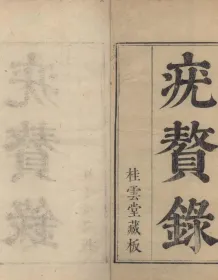 疣贅錄
桂雲堂藏板